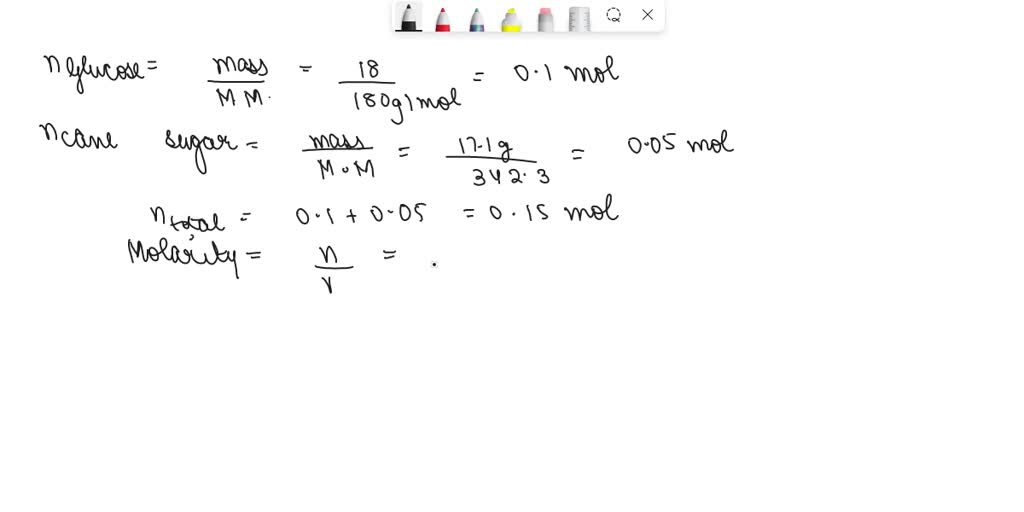 n glucose = mass / M M. = 18 / 180g/mol = 0.1 mol
n cane sugar = mass / M.M = 17.1g / 342.3 = 0.05 mol
n total = 0.1 + 0.05 = 0.15 mol
Molarity = n / V =